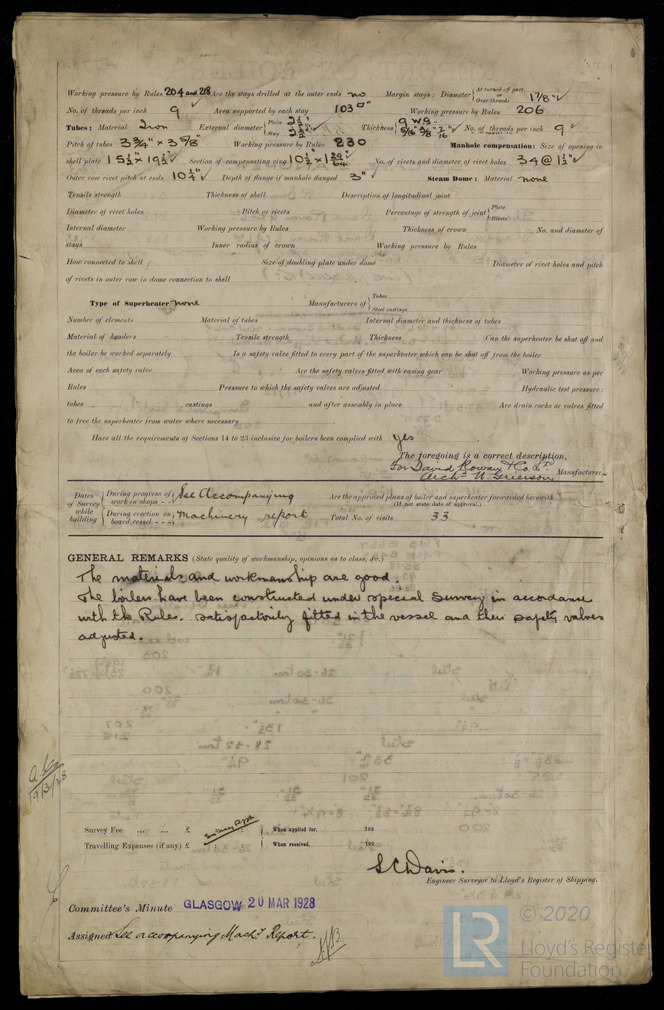 Working pressure by Rules 204 and 218 Are the stays drilled at the outer ends no Margin stays: Diameter { At turned off part, or Over threads 1 7/8" ✓
No. of threads per inch 9 ✓ Area supported by each stay 103 □" Working pressure by Rules 206
Tubes: Material Iron External diameter { Plain 2 1/2" Stay 2 1/2" ✓ Thickness { 9 W.G. 5/16" 3/8" 7/16" ✓ No. of threads per inch 9 ✓
Pitch of tubes 3 3/4" × 3 5/8" Working pressure by Rules 230 Manhole compensation: Size of opening in
shell plate 15 1/2" × 19 1/2" ✓ Section of compensating ring No. of rivets and diameter of rivet holes 34 @ 1 1/2" ✓
Outer row rivet pitch at ends 10 1/4" ✓ Depth of flange if manhole flanged 3" ✓ Steam Dome: Material none
Tensile strength Thickness of shell Description of longitudinal joint
Diameter of rivet holes Pitch of rivets Percentage of strength of joint { Plate Rivets
Internal diameter Working pressure by Rules Thickness of crown No. and diameter of
stays Inner radius of crown Working pressure by Rules
How connected to shell Size of doubling plate under dome Diameter of rivet holes and pitch
of rivets in outer row in dome connection to shell
Type of Superheater none Manufacturers of { Tubes Steel castings
Number of elements Material of tubes Internal diameter and thickness of tubes
Material of headers Tensile strength Thickness Can the superheater be shut off and
the boiler be worked separately Is a safety valve fitted to every part of the superheater which can be shut off from the boiler
Area of each safety valve Are the safety valves fitted with easing gear Working pressure as per
Rules Pressure to which the safety valves are adjusted Hydraulic test pressure:
tubes , castings and after assembly in place Are drain cocks or valves fitted
to free the superheater from water where necessary
Have all the requirements of Sections 14 to 23 inclusive for boilers been complied with yes
The foregoing is a correct description,
For David Rowan & Co. Ltd
Archd. W. Grierson Manufacturer
Dates of Survey while building { During progress of work in shops - - See Accompanying Are the approved plans of boiler and superheater forwarded herewith
(If not state date of approval.)
{ During erection on board vessel - - - Machinery report Total No. of visits 33
GENERAL REMARKS (State quality of workmanship, opinions as to class, &c.)
The materials and workmanship are good.
The boilers have been constructed under special survey in accordance
with the Rules. satisfactorily fitted in the vessel and their safety valves
adjusted.
19/3/28
Survey Fee ... ... £ When applied for, 192
Travelling Expenses (if any) £ When received, 192
S C Davis.
Engineer Surveyor to Lloyd's Register of Shipping.
Committee's Minute GLASGOW 20 MAR 1928
Assigned See accompanying Machy Report.
LR © 2020
Lloyd's Register
Foundation